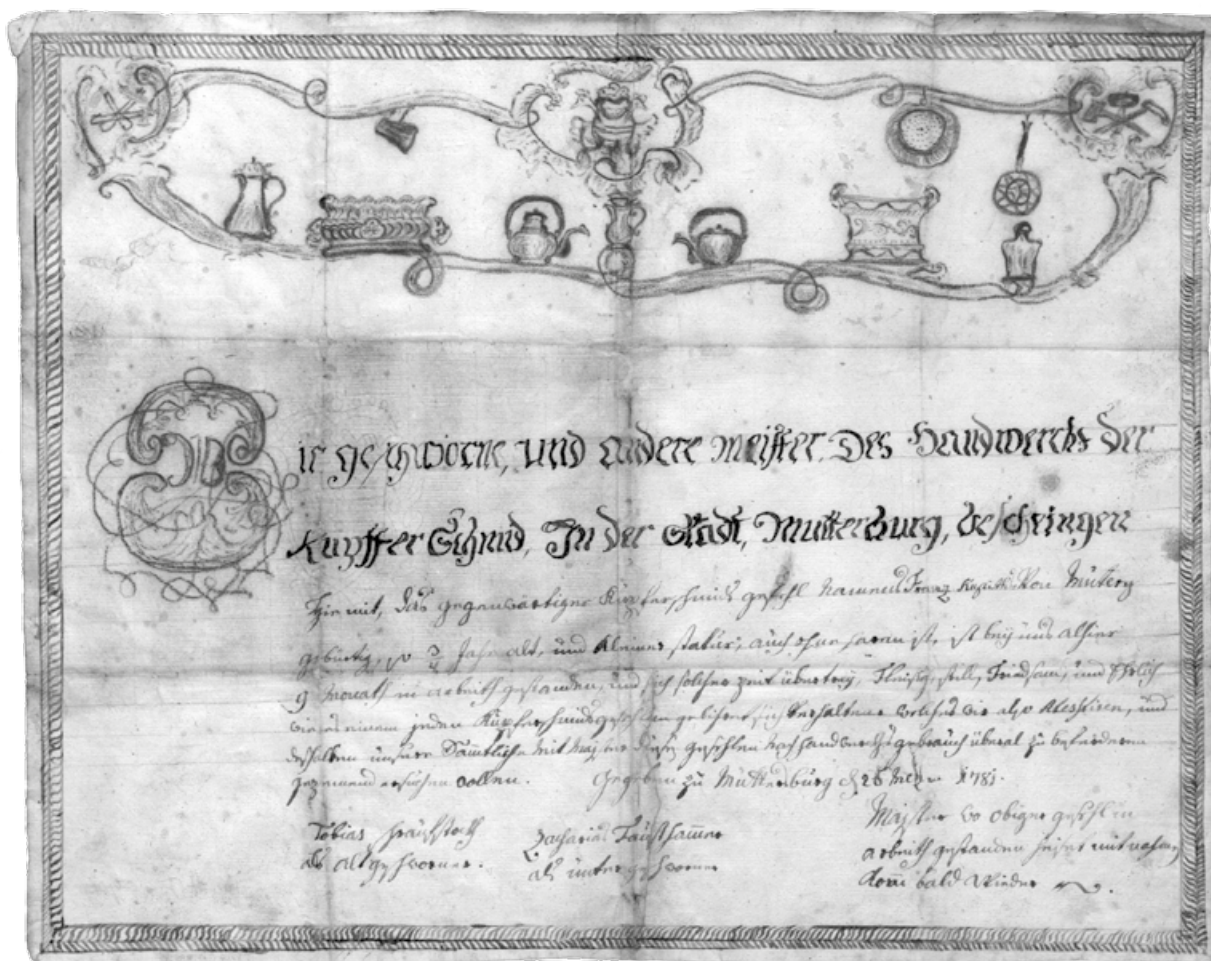 Wir geschworne, und andere Meister, Des Handwercks der
Kupffer Schmid, In der Stadt, Mutterburg, bescheingen
Hiemit, das gegenwärtiger Kupferschmids gesehl namens Frantz von
gebürtig, so Jahr alt, und kleiner statur, auch ist, ist bey uns alhier
9 Monath in arbeith gestanden, und sich solcher zeit über treu, Fleisig, still, Friedsam, und Ehrlich
wie es einem jeden Kupferschmidsgesehlen gebühret sich Verhalten welches wir also und
deshalben unsere Sämtliche mit diesen gesehlen nach handwercks gebrauch überal zu beförderen
geziemend ersuchen wollen. Gegeben zu Mutterburg d 26 1781.
Tobias
als alt geschworner.
Zacharias Fausthammer
als unter geschworner
Majster wo obiger gesehl in
arbeith gestanden heiset mit nahmen
Kom bald Wieder